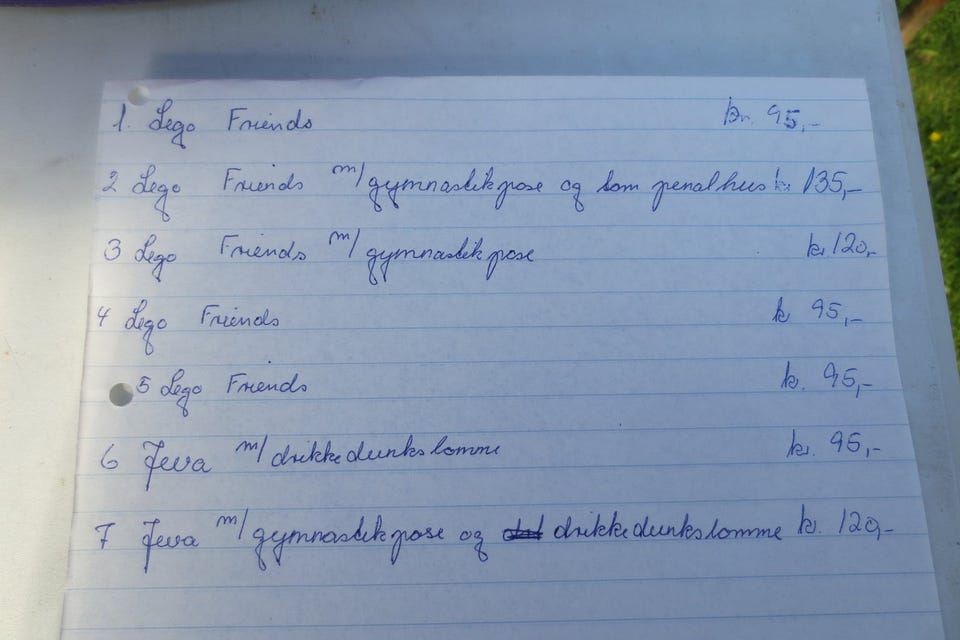 1. Lego Friends kr. 95,-
2 Lego Friends m/ gymnastikpose og tom penalhus k. 135,-
3 Lego Friends m/ gymnastikpose kr 120,-
4 Lego Friends k 95,-
5 Lego Friends k. 95,-
6 Jeva m/ drikkedunkslomme kr. 95,-
7 Jeva m/ gymnastikpose og drikkedunkslomme kr. 120,-